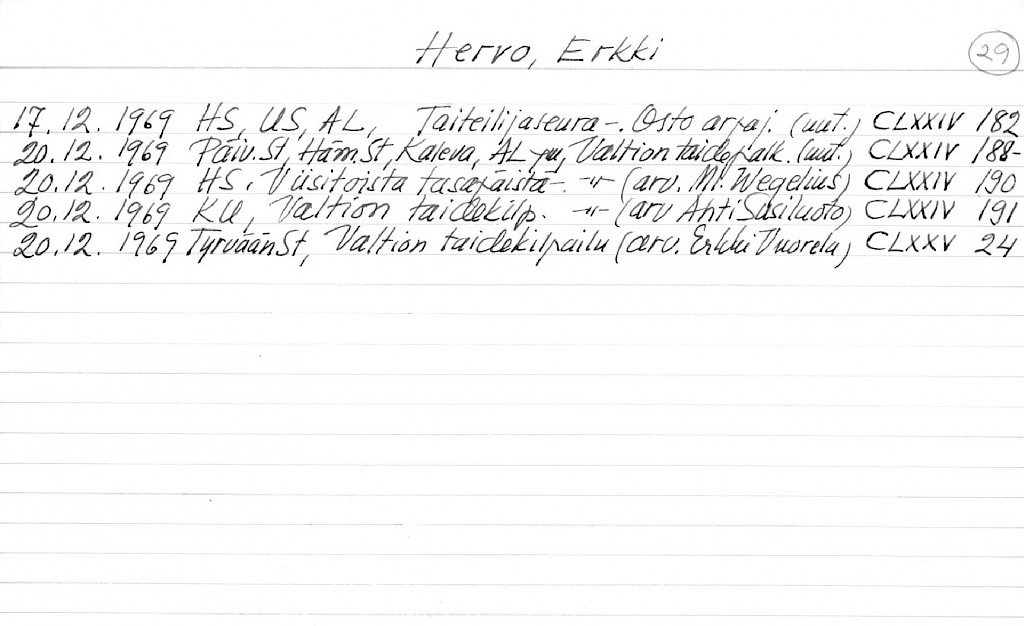 Hervo, Erkki 29
17.12.1969 HS, US, AL, Taiteilijaseura -. Osto arpaj. (uut.) CLXXIV 182
20.12.1969 Päiv.St, Häm.St, Kaleva, AL ym, Valtion taidepalk. (uut.) CLXXIV 188-
20.12.1969 HS, Viisitoista tasapäistä -. -"- (arv. M. Wegelius) CLXXIV 190
20.12.1969 KU, Valtion taidekilp. -"- (arv Ahti Susiluoto) CLXXIV 191
20.12.1969 Tyrvään St, Valtion taidekilpailu (arv. Erkki Vuorela) CLXXV 24